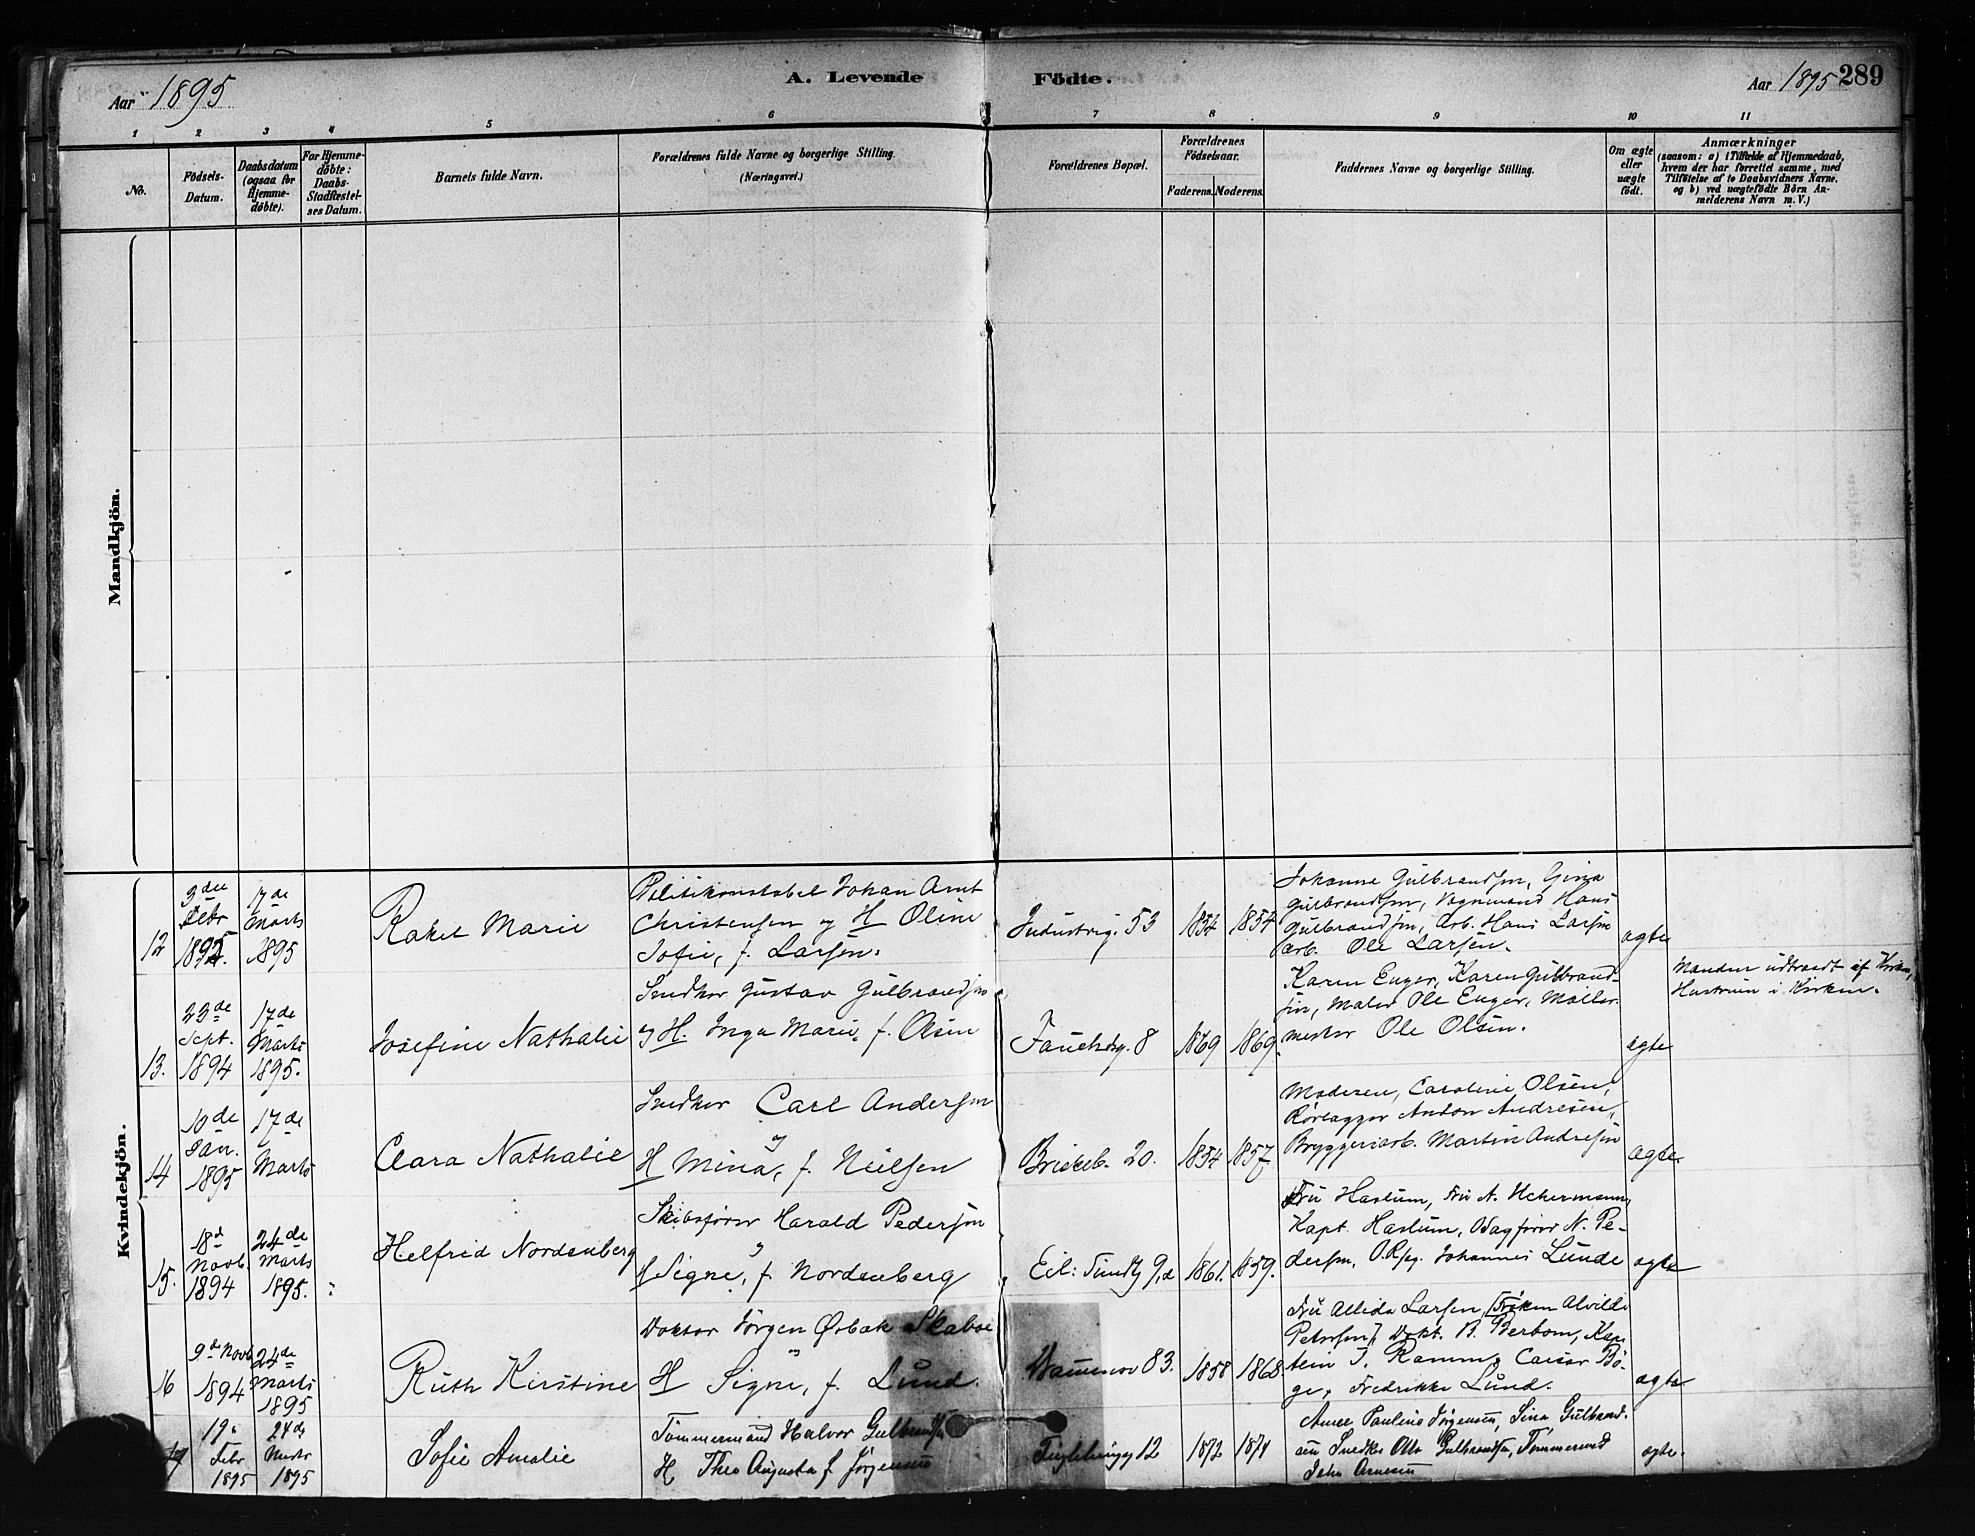 Aar 1895
A. Levende Födte.
Aar 1895 289
1 2 3 4 5 6 7 8 9 10 11
No.
Födsels-
Datum.
Daabsdatum
(ogsaa for
Hjemme-
döbte).
For Hjemme-
döbte:
Daabs-
Stadfæstel-
ses Datum.
Barnets fulde Navn.
Forældrenes fulde Navne og borgerlige Stilling.
(Næringsvei.)
Forældrenes Bopæl.
Forældrenes
Födselsaar.
Faderens. Moderens.
Faddernes Navne og borgerlige Stilling.
Om ægte
eller
uægte
födt.
Anmærkninger
(saasom: a) i Tilfælde af Hjemmedaab,
hvem der har forrettet samme, med
Tilföielse af to Daabsvidners Navne,
og b) ved uægtefödte Börn An-
melderens Navn m. V.)
Mandkjön.
Kvindekjön.
12
1895.
17de
Marts
1895
Rakel Marie
Politikonstabel Johan Arnt
Christensen og H Oline
Sofie, f. Larsen.
Industrig. 53
1854
1854
Johanne Gulbrandsen, Gina
Gulbrandsen, Vognmand Hans
Gulbrandsen, Arb. Hans Larsen
Arb. Ole Larsen.
ægte
13.
23de
Sept.
1894
17de
Marts
1895.
Josefine Nathalie
Snedker Gustav Gulbrandsen
og H. Inga Marie, f. Olsen
Fauchdsg. 8
1869
1869.
Karen Enger, Karen Gulbrand-
sen, Maler Ole Enger, Møller-
mester Ole Olsen.
ægte
Manden udtraadt af Kirken,
Hustruen i Kirken.
14
10de
Jan.
1895
17de
Marts
Clara Nathalie
Snedker Carl Andersen
og
H Mina, f. Nielsen
Briskeb. 20.
1854
1857
Moderen, Caroline Olsen,
Rørlægger Anton Andresen,
Bryggeriarb. Martin Andresen
ægte
15.
18d
Novb.
1894
24de
Marts
1895.
Helfrid Nordenberg
Skibsfører Harald Pedersen
og
H Signe, f. Nordenberg
Eil: Sundtg 9,a
1861.
1859.
Fru Haslum, Fru A. Uchermann,
Kapt. Haslum, Bagfører N. Pe-
dersen, O.Rsag. Johannes Lunde
ægte
16
9de Novb
1894
24de
Marts
1895
Ruth Kirstine
Doktor Jørgen Ørbæk Skaboe
og
H Signe, f. Lund.
83.
1858
1868
Fru Allida Larsen, [Frøken Alvilde
Petersen], Dokt. B. Berbom, Kap-
tein J. Ramm, Cæsar Bø-
ge, Fredrikke Lund.
ægte
17
19.
Febr
1895
24de
Marts
1895
Sofie Amalie
Tømmermand Halvor Gulbrandsen
H Thea Augusta f Jørgensen
12
1872
1874
Anne Pauline Jørgensen, Sina Gulbrand-
sen Snedker Otto Gulbrandsen, Tømmermand
John Arnesen
ægte.